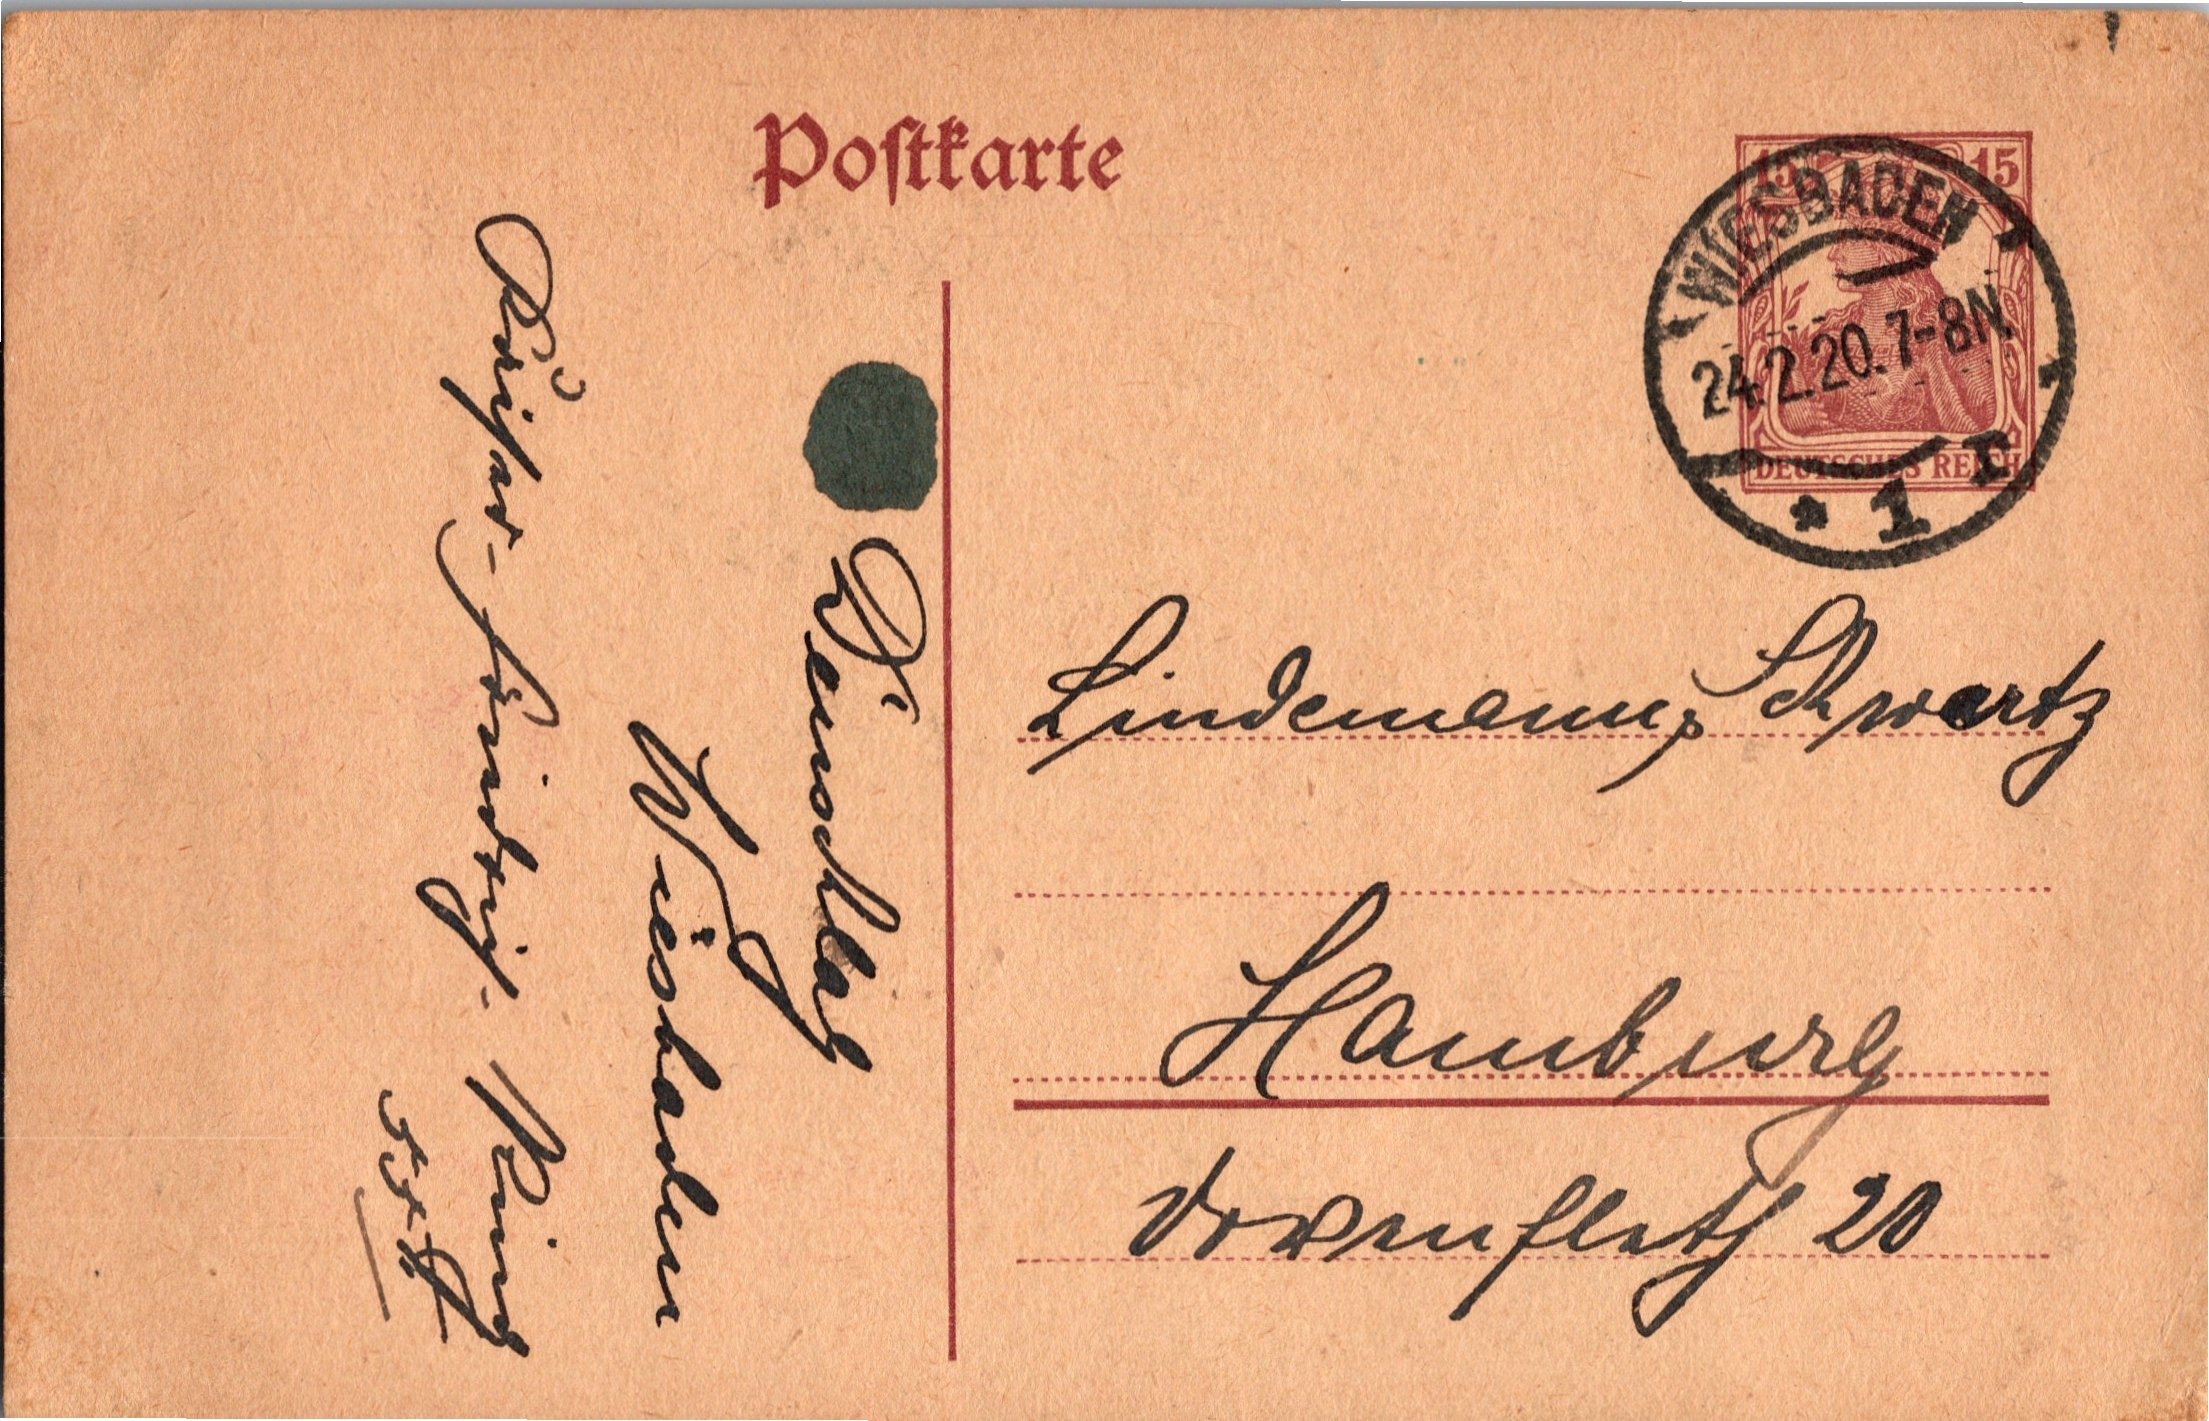 Postkarte
15 15
DEUTSCHES REICH
WIESBADEN
24.2.20.7-8N.
* 1 r
Lindemann, Schwartz
Hamburg
Dovenfleth 20
Wiesbaden
Kaiser-Friedrich-Ring